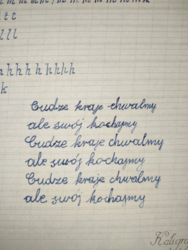 t t
l l l
h h h h h h h h
k
Cudze kraje chwalmy
ale swój kochajmy
Cudze kraje chwalmy
ale swój kochajmy
Cudze kraje chwalmy
ale swój kochajmy